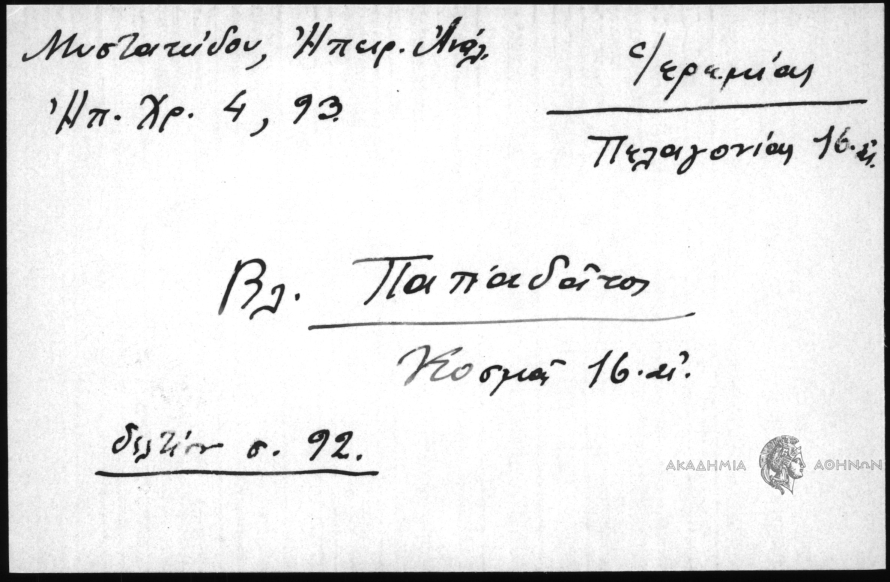 Μυστακίδου, Ἠπειρ. Ἀνάλ.
Ἠπ. Χρ. 4, 93.
Ἱερεμίας
Πελαγονίας 16. αἰ.
Βλ. Παπαδᾶτος
Κοσμᾶ 16. αἰ.
δελτίον σ. 92.
ΑΚΑΔΗΜΙΑ ΑΘΗΝΩΝ